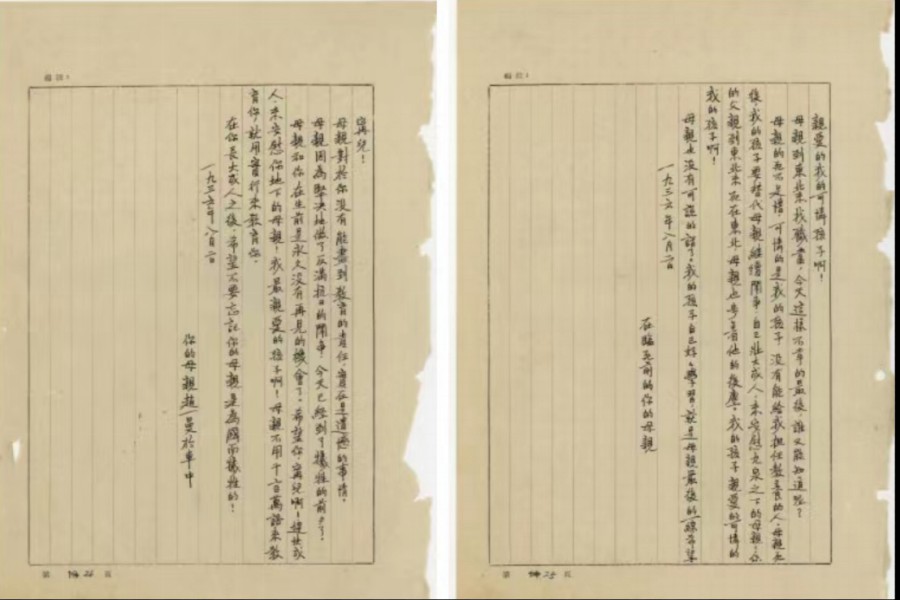 寧兒！
母親對於你沒有能盡到教育的責任，實在是遺憾的事情。
母親因為堅決地做了反滿抗日的鬥爭，今天已經到了犧牲的前夕了！
母親和你在生前是永久沒有再見的機會了。希望你，寧兒啊！趕快成
人，來安慰你地下的母親！我最親愛的孩子啊！母親不用千言萬語來教
育你，就用實行來教育你。
在你長大成人之後，希望不要忘記你的母親是為國而犧牲的！
一九三六年八月二日
你的母親趙一曼於車中
第 24 頁
親愛的我的可憐孩子啊！
母親到東北來找職業，今天這樣不幸的最後，誰又能知道呢？
母親的死不足惜，可憐的是我的孩子，沒有能給我担任教養的人。母親死
後，我的孩子要替代母親繼續鬥爭，自己壯大成人，來安慰九泉之下的母親！你
的父親到東北來死在東北，母親也步着他的後塵。我的孩子，親愛的可憐的
我的孩子啊！
母親也沒有可說的話了。我的孩子自己好好學習，就是母親最後的一線希望
一九三六年八月二日
在臨死前的你的母親
第 25 頁